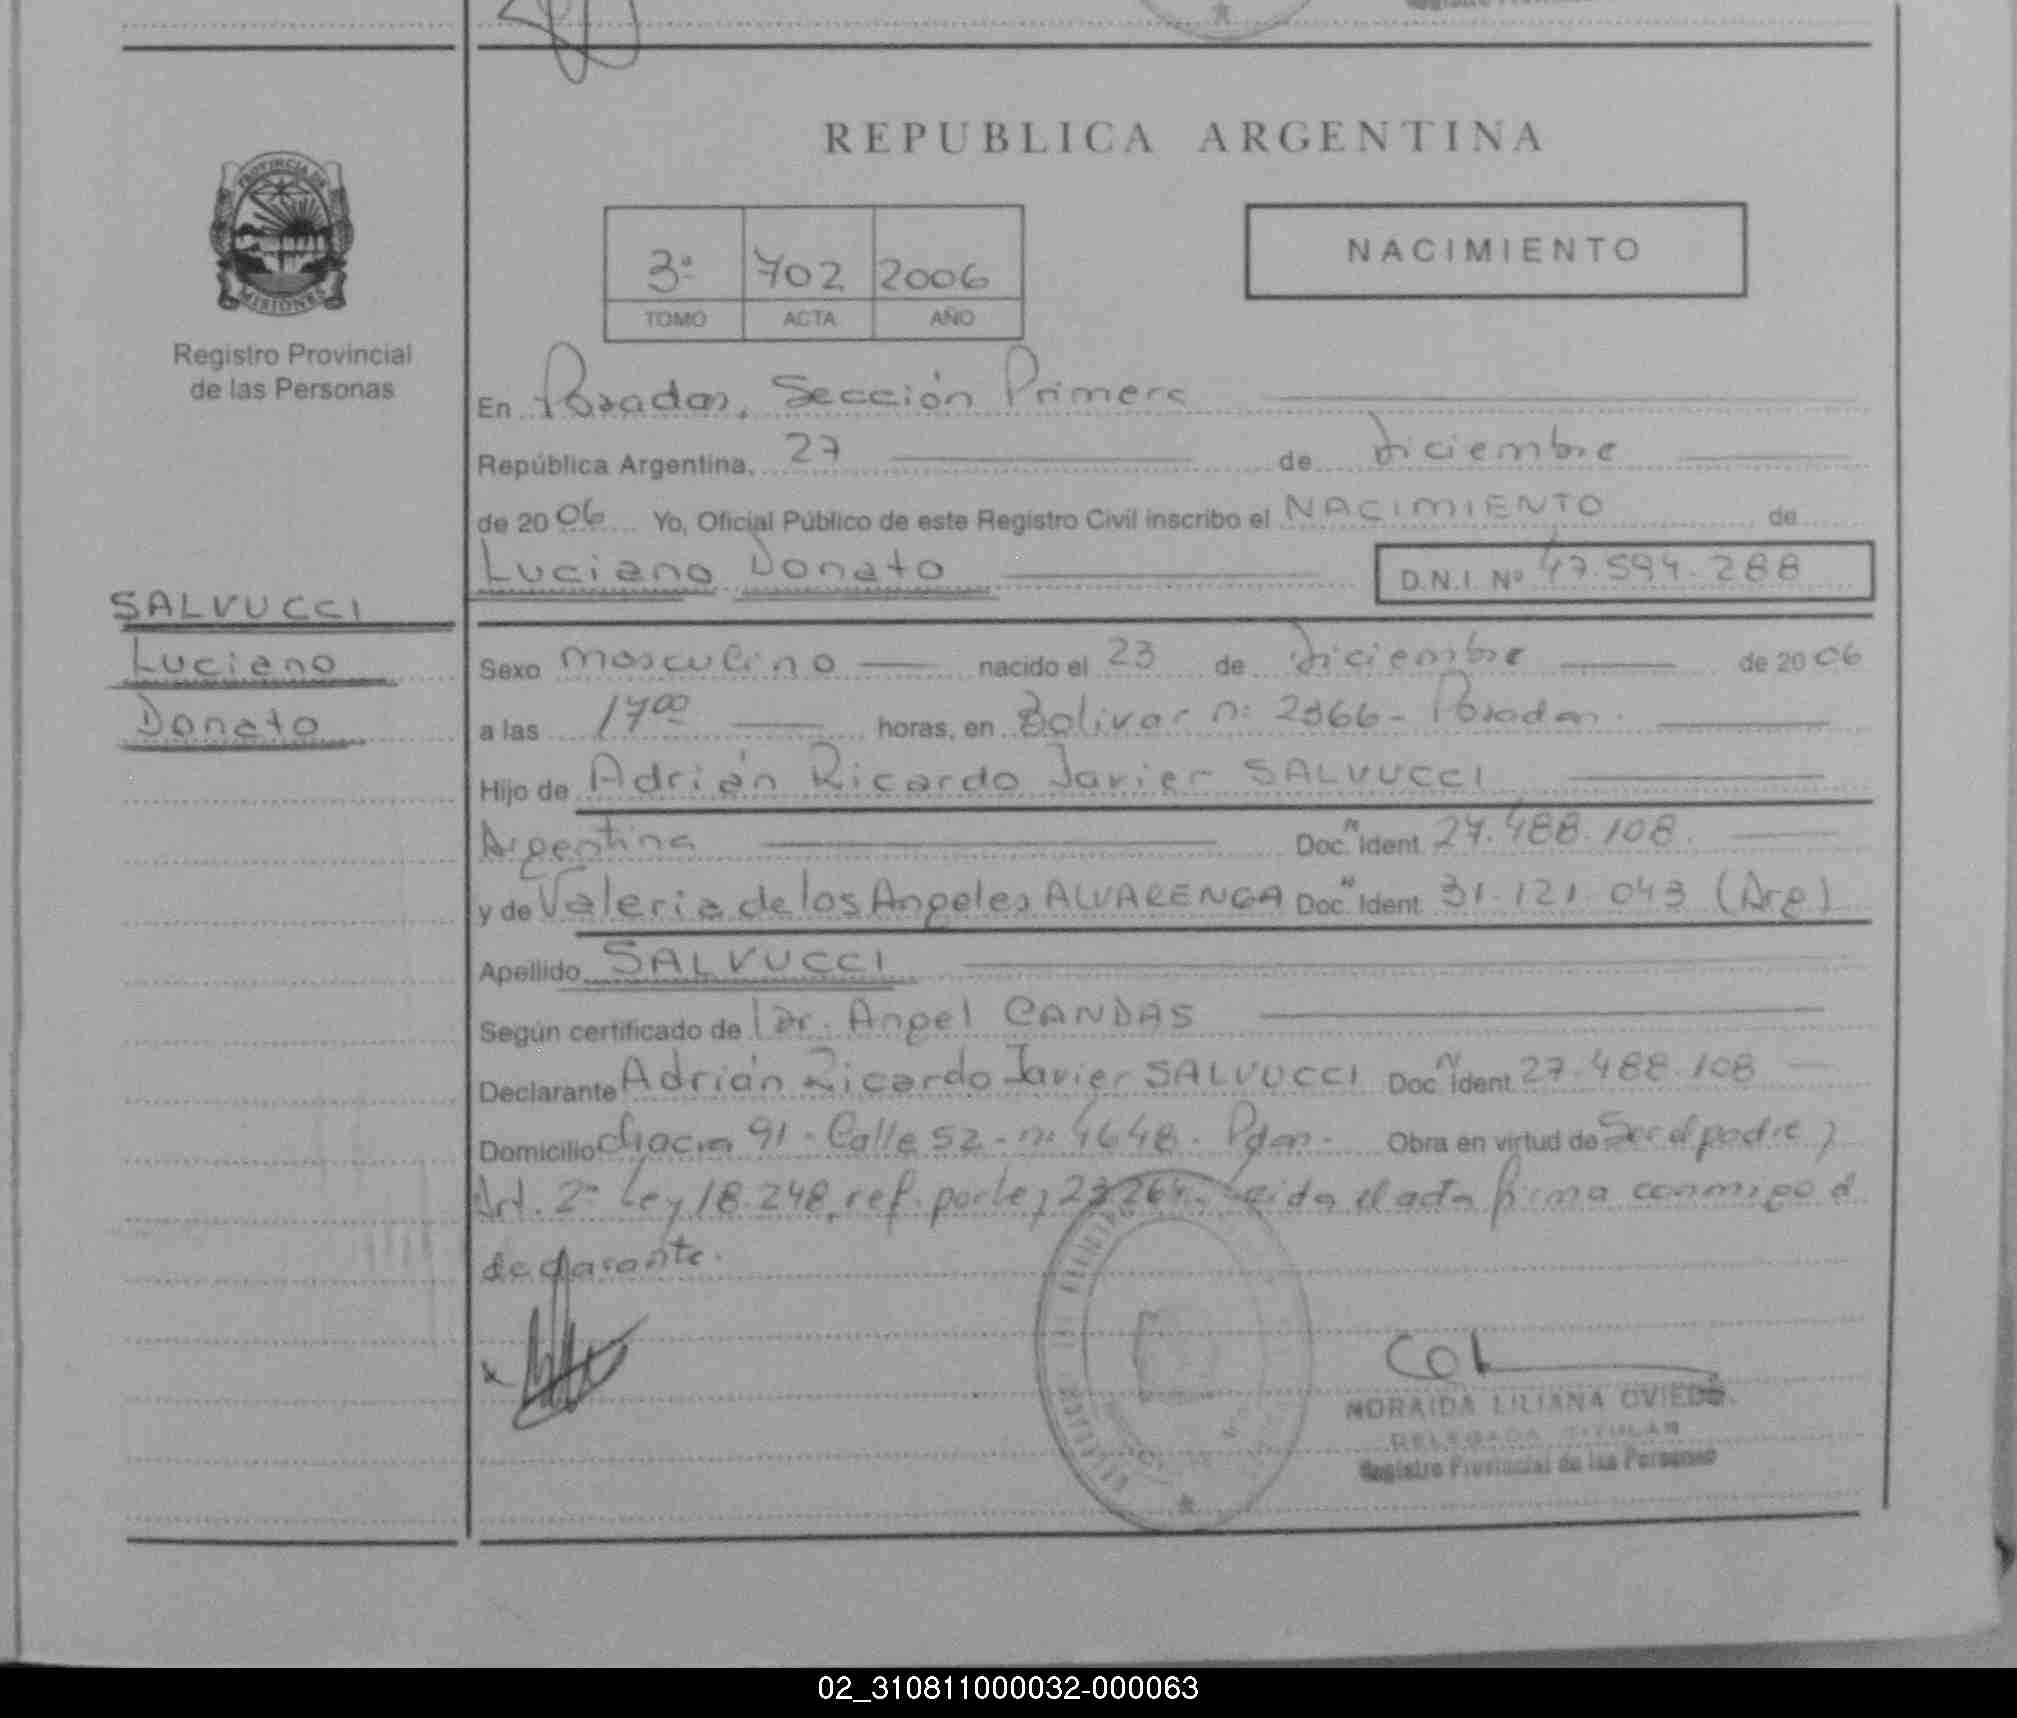 REPUBLICA ARGENTINA
PROVINCIA DE
MISIONES
Registro Provincial
de las Personas
3ª 702 2006
TOMO ACTA AÑO
NACIMIENTO
En Posadas, Sección Primera
República Argentina, 27 de Diciembre
de 2006 Yo, Oficial Público de este Registro Civil inscribo el NACIMIENTO de
Luciano Donato D.N.I. Nº 47.594.288
SALVUCCI
Luciano
Donato
Sexo masculino nacido el 23 de Diciembre de 2006
a las 17 00 horas, en Bolivar nº 2366 - Posadas.
Hijo de Adrián Ricardo Javier SALVUCCI
Argentina Doc. Ident. 27.488.108.
y de Valeria de los Angeles ALVARENGA Doc. Ident. 31.121.043 (Arg)
Apellido SALVUCCI
Según certificado de Dr. Angel CANDAS
Declarante Adrián Ricardo Javier SALVUCCI Doc. Ident. 27.488.108
Domicilio chacra 91 - Calle 52 - nº 4648 - Pdas. Obra en virtud de Ser el padre y
Art. 2º Ley 18.248, ref. por ley 23.264. Leida el acta firma conmigo el
declarante.
NORAIDA LILIANA OVIEDO
DELEGADA TITULAR
Registro Provincial de las Personas
02_310811000032-000063